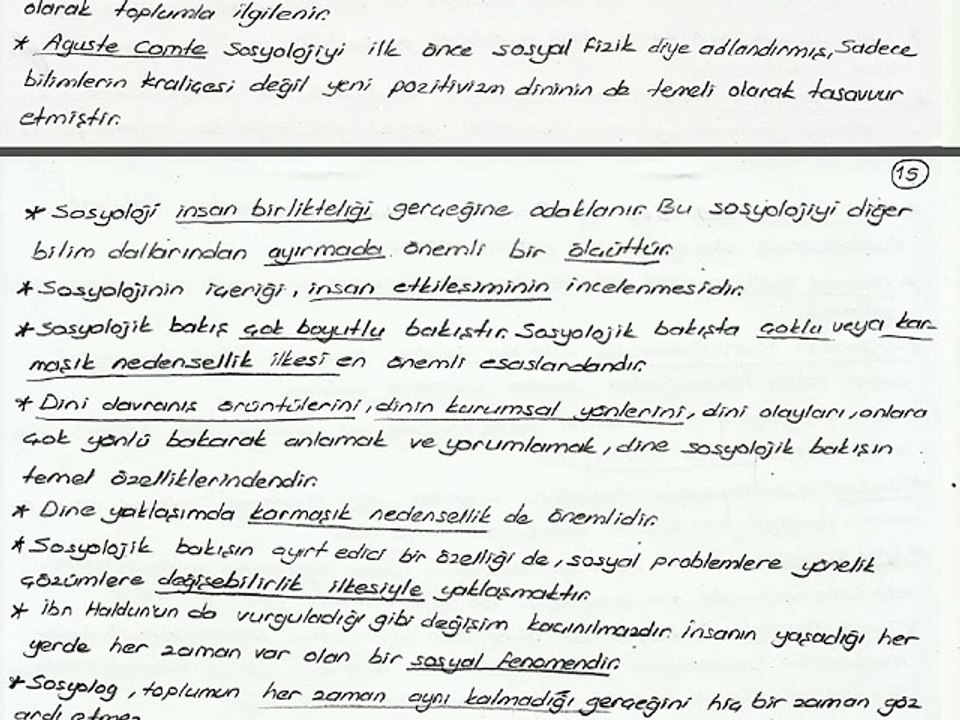 olarak toplumla ilgilenir.
* Aguste Comte Sosyolojiyi ilk önce sosyal fizik diye adlandırmış, Sadece
bilimlerin kraliçesi değil yeni pozitivizm dininin de temeli olarak tasavvur
etmiştir.
15
* Sosyoloji insan birlikteliği gerçeğine odaklanır. Bu sosyolojiyi diğer
bilim dallarından ayırmada önemli bir ölçüttür.
* Sosyolojinin içeriği, insan etkileşiminin incelenmesidir.
* Sosyolojik bakış çok boyutlu bakıştır. Sosyolojik bakışta çoklu veya kar-
maşık nedensellik ilkesi en önemli esaslardandır.
* Dini davranış örüntülerini, dinin kurumsal yönlerini, dini olayları, onlara
çok yönlü bakarak anlamak ve yorumlamak, dine sosyolojik bakışın
temel özelliklerindendir.
* Dine yaklaşımda karmaşık nedensellik de önemlidir.
* Sosyolojik bakışın ayırt edici bir özelliği de, sosyal problemlere yönelik
çözümlere değişebilirlik ilkesiyle yaklaşmaktır.
* İbn Haldun'un da vurguladığı gibi değişim kaçınılmazdır. İnsanın yaşadığı her
yerde her zaman var olan bir sosyal fenomendir.
* Sosyolog, toplumun her zaman aynı kalmadığı gerçeğini hiç bir zaman göz
ardı etmez